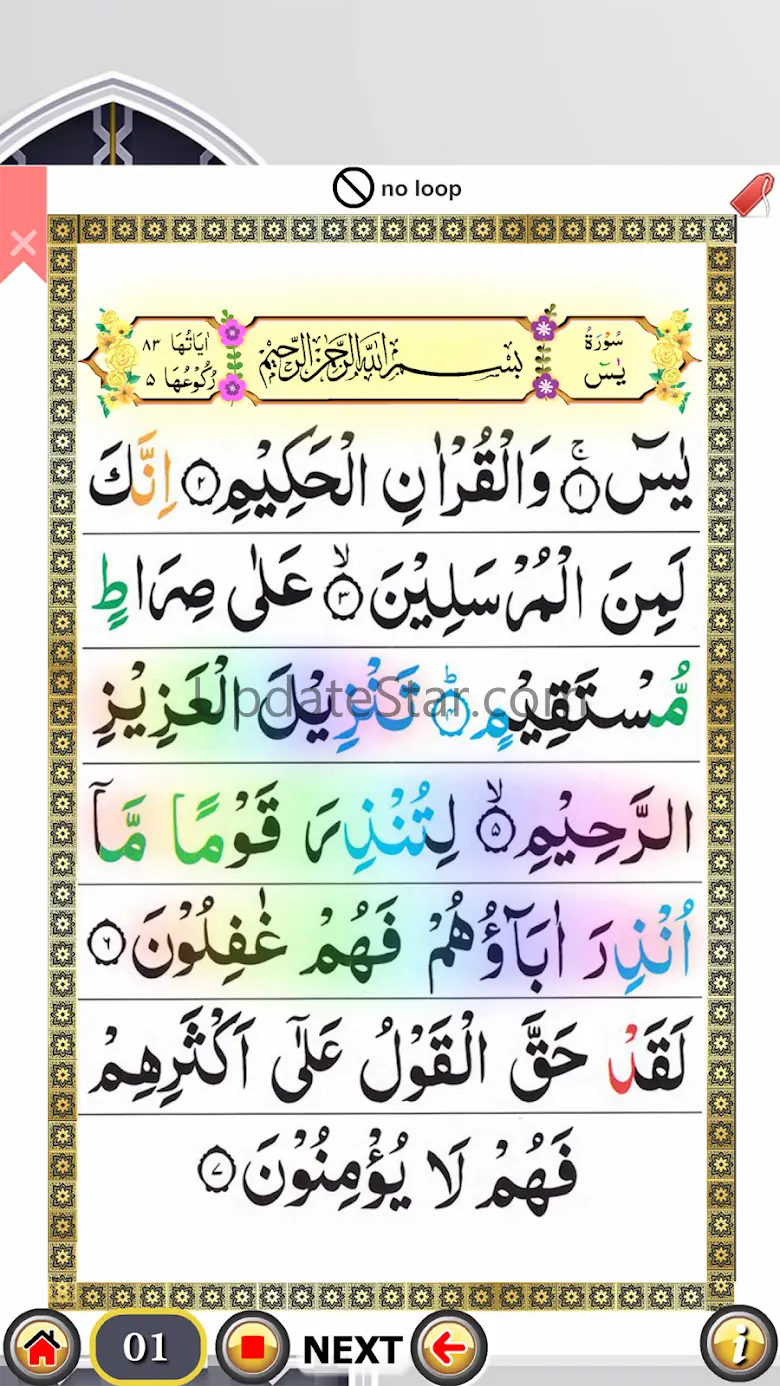 no loop
سُوْرَةُ
يٰسٓ
بِسْمِ اللّٰهِ الرَّحْمٰنِ الرَّحِيْمِ
اٰيَاتُهَا ٨٣
رُكُوْعُهَا ٥
يٰسٓ ۚ ١ وَالْقُرْاٰنِ الْحَكِيْمِ ٢ اِنَّكَ
لَمِنَ الْمُرْسَلِيْنَ ۙ ٣ عَلٰى صِرَاطٍ
مُّسْتَقِيْمٍ ؕ ٤ تَنْزِيْلَ الْعَزِيْزِ
UpdateStar.com
الرَّحِيْمِ ۙ ٥ لِتُنْذِرَ قَوْمًا مَّاۤ
اُنْذِرَ اٰبَآؤُهُمْ فَهُمْ غٰفِلُوْنَ ٦
لَقَدْ حَقَّ الْقَوْلُ عَلٰٓى اَكْثَرِهِمْ
فَهُمْ لَا يُؤْمِنُوْنَ ٧
01 NEXT i